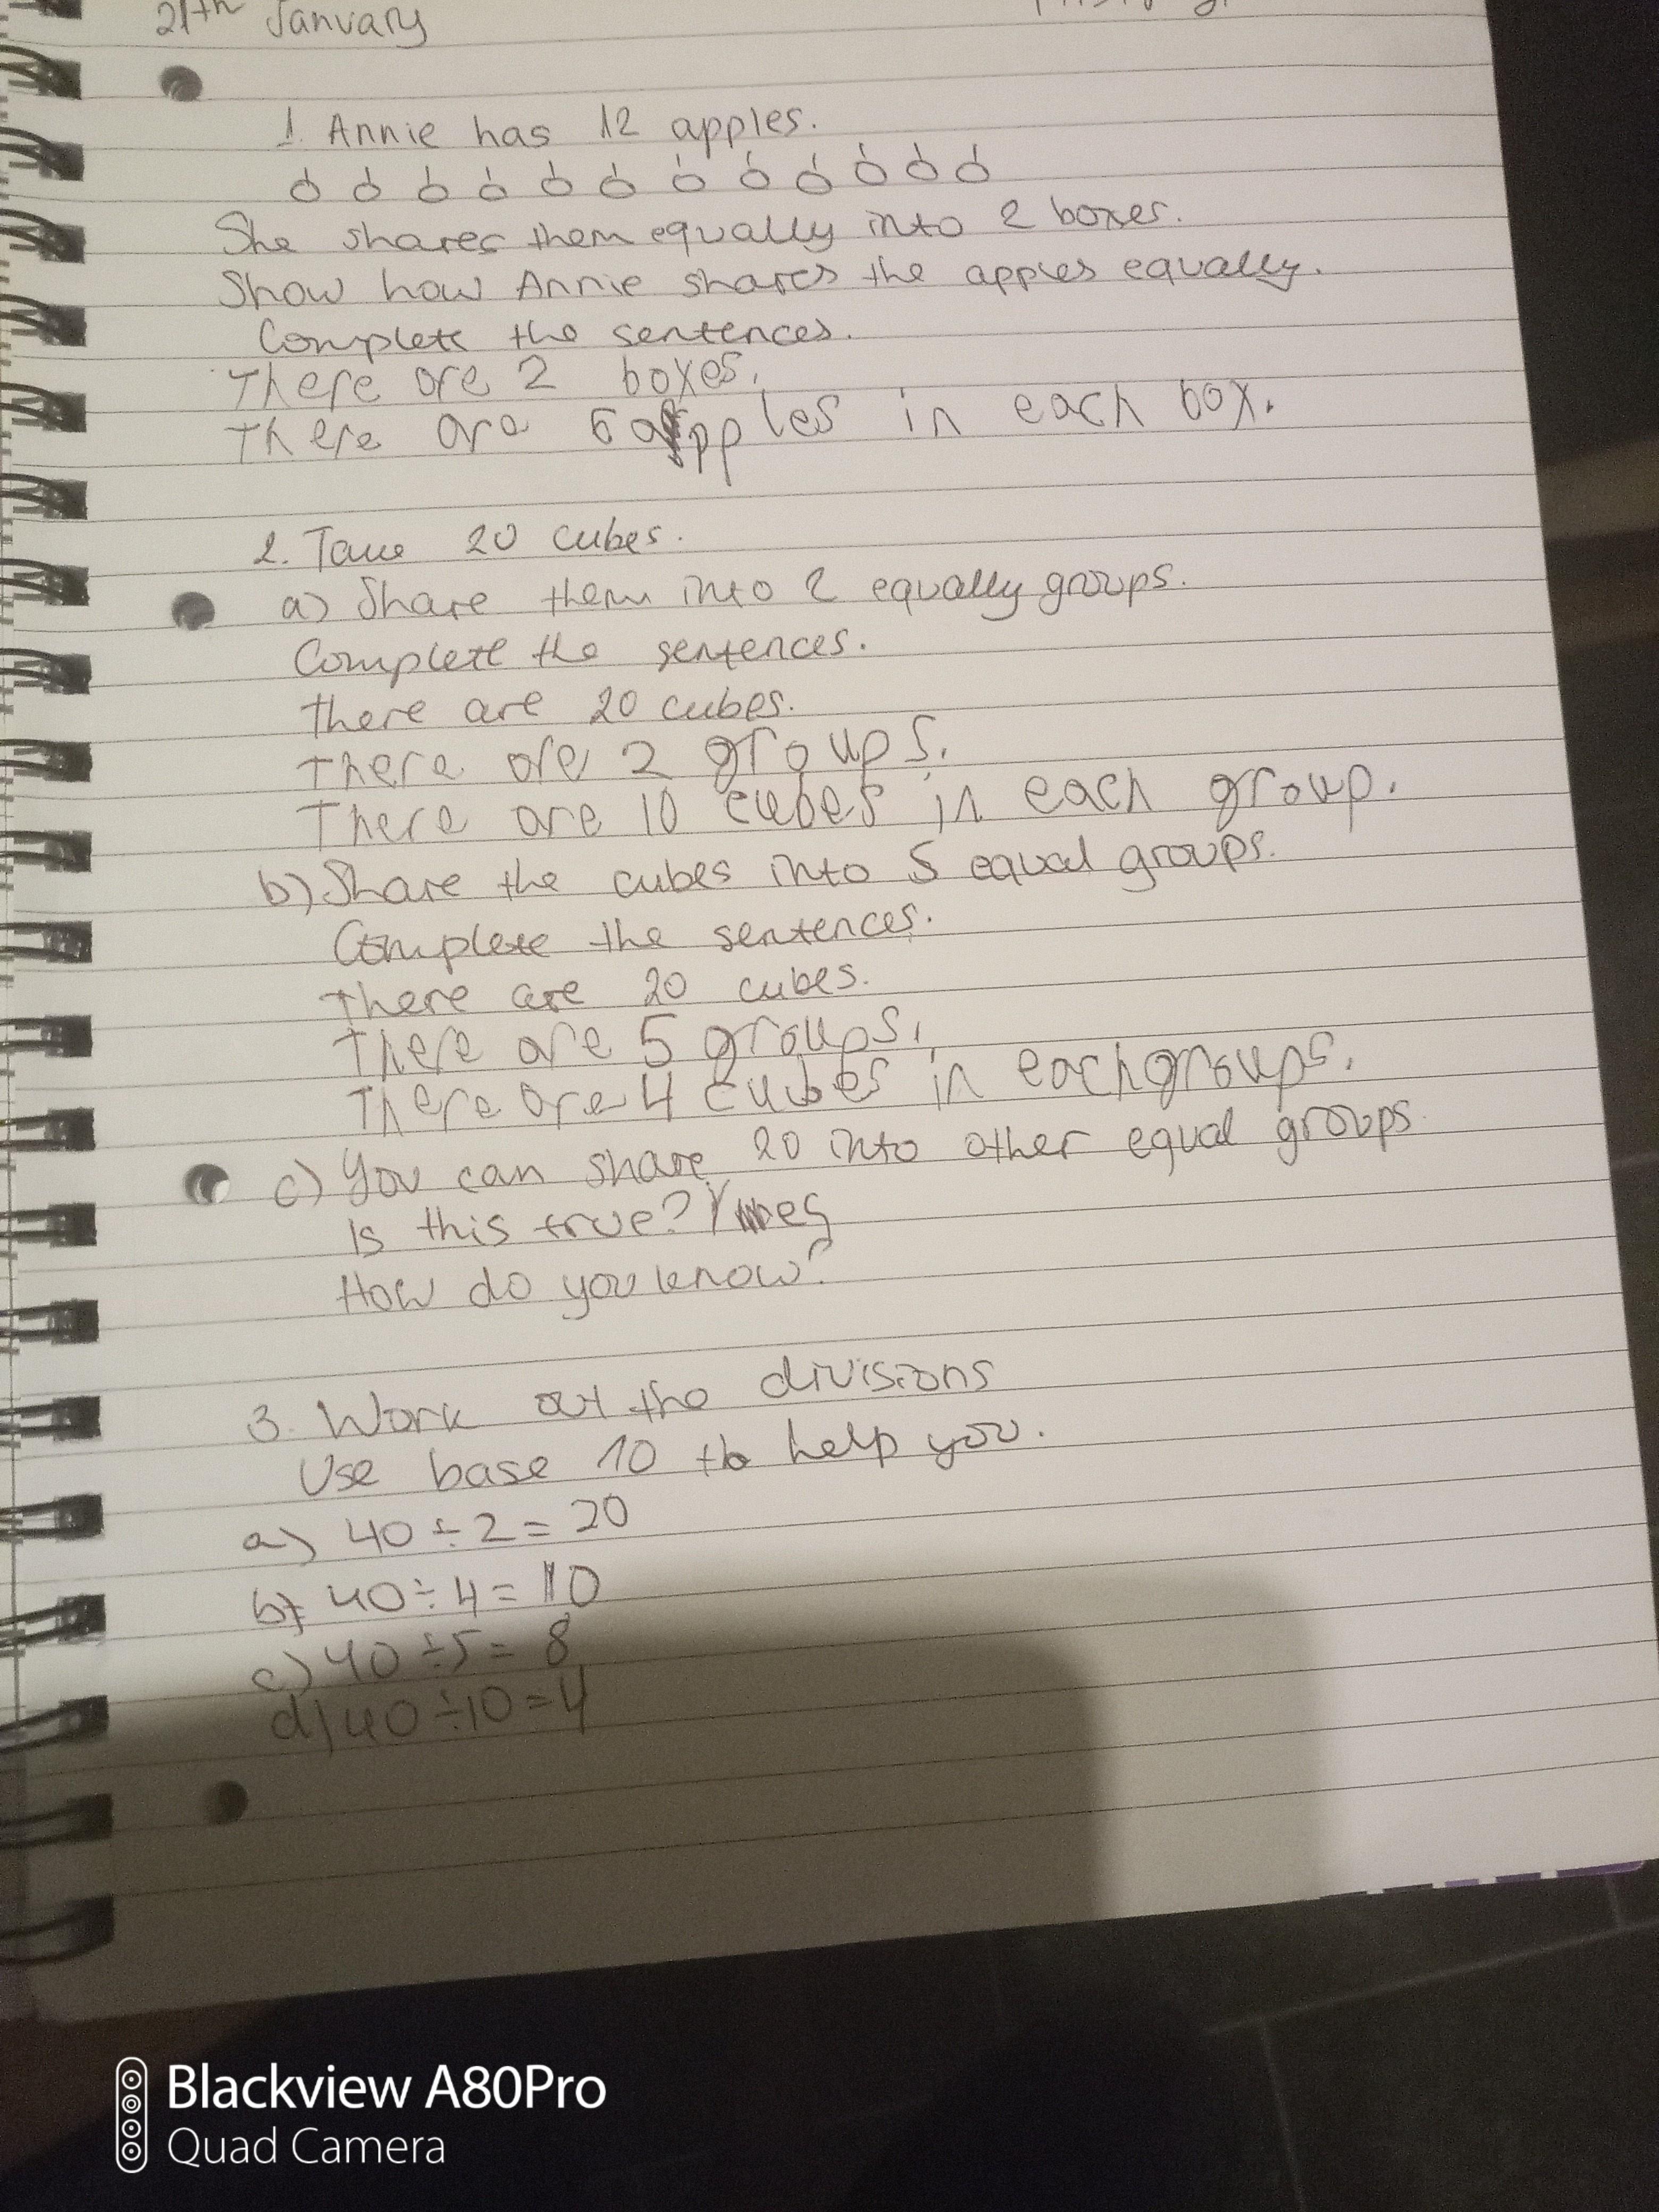 21th January
1. Annie has 12 apples.
She shares them equally into 2 boxes.
Show how Annie shares the apples equally.
Complete the sentences.
There are 2 boxes.
There are 6 apples in each box.
2. Take 20 cubes.
a) Share them into 2 equally groups.
Complete the sentences.
there are 20 cubes.
There are 2 groups.
There are 10 cubes in each group.
b) Share the cubes into 5 equal groups.
Complete the sentences.
There are 20 cubes.
There are 5 groups.
There are 4 cubes in each groups.
c) You can share 20 into other equal groups.
Is this true? Yes
How do you know?
3. Work out the divisions
Use base 10 to help you.
a) 40 ÷ 2 = 20
b) 40 ÷ 4 = 10
c) 40 ÷ 5 = 8
d) 40 ÷ 10 = 4
Blackview A80Pro
Quad Camera